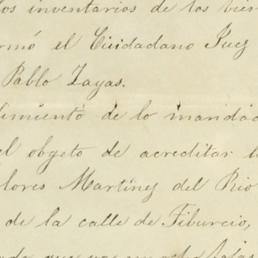 los inventarios de los bien
rmó el Ciudadano Juez
Pablo Zayas.
limiento de lo mandad
el obgeto de acreditar l
lores Martínez del Rio
de la calle de Tiburcio,